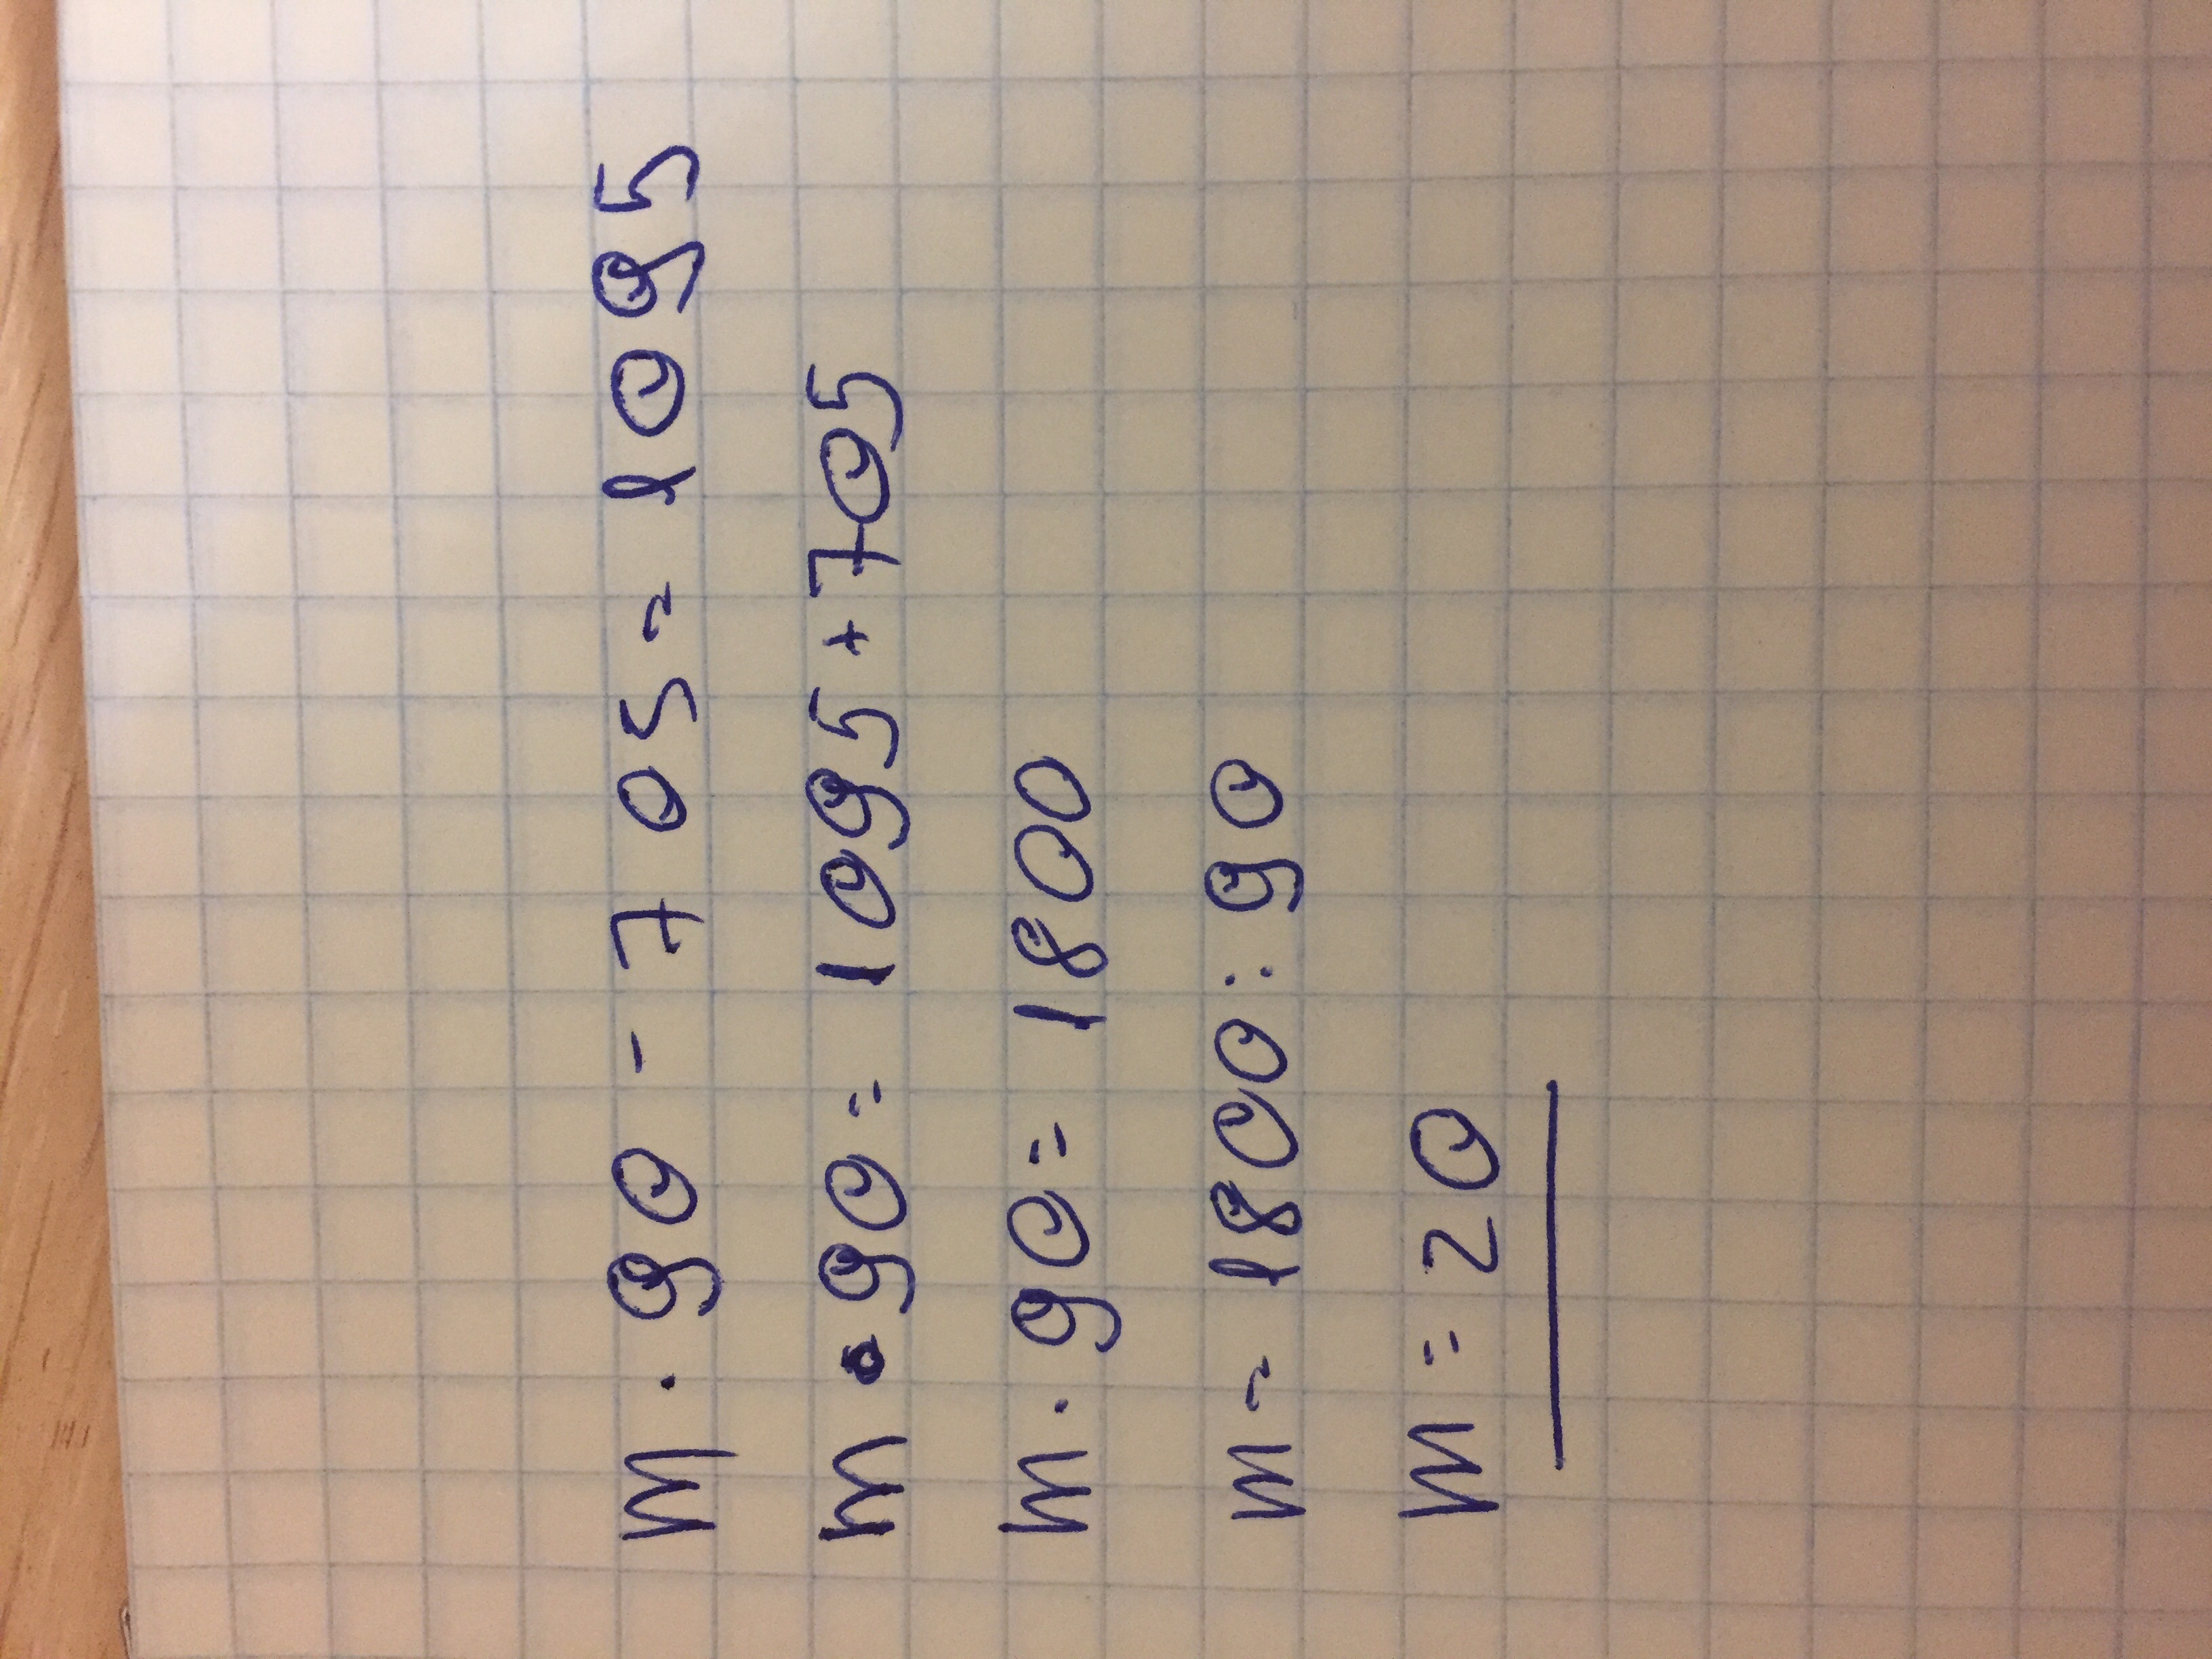 m · 90 - 705 = 1095
m · 90 = 1095 + 705
m · 90 = 1800
m = 1800 : 90
m = 20